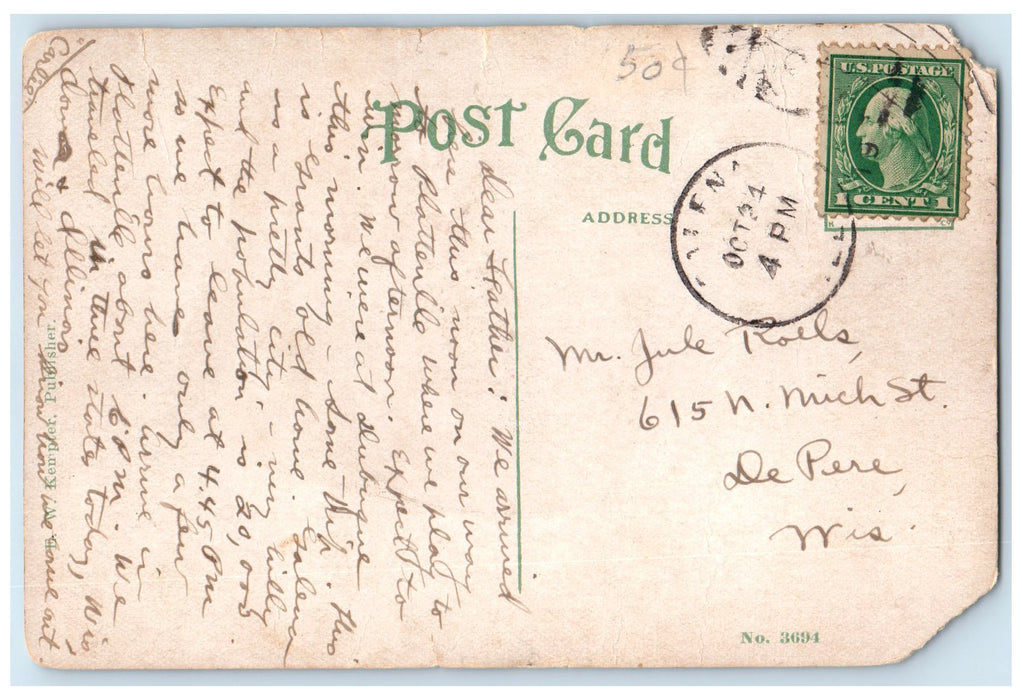 50¢
POST CARD
U.S. POSTAGE
1 CENT 1
OCT 24
4 PM
ADDRESS
Mr. Jule Rolls,
615 N. Mich St.
De Pere,
Wis
No. 3694
Dear Father: We arrived
here this noon on our way
to Platteville where we play to-
morrow afternoon. Expect to
win. We were at Dubuque
this morning - some trip. This
is Grants old home. Galena
is a pretty city - very hilly
and the population is 20,000
Expect to leave at 4.45 PM
so we have only a few
more hours here. Arrive in
Platteville about 6 PM. We
traveled in three states today, Wis
Iowa & Illinois
will let you know how we come out
E. W. Kempter, Publisher.